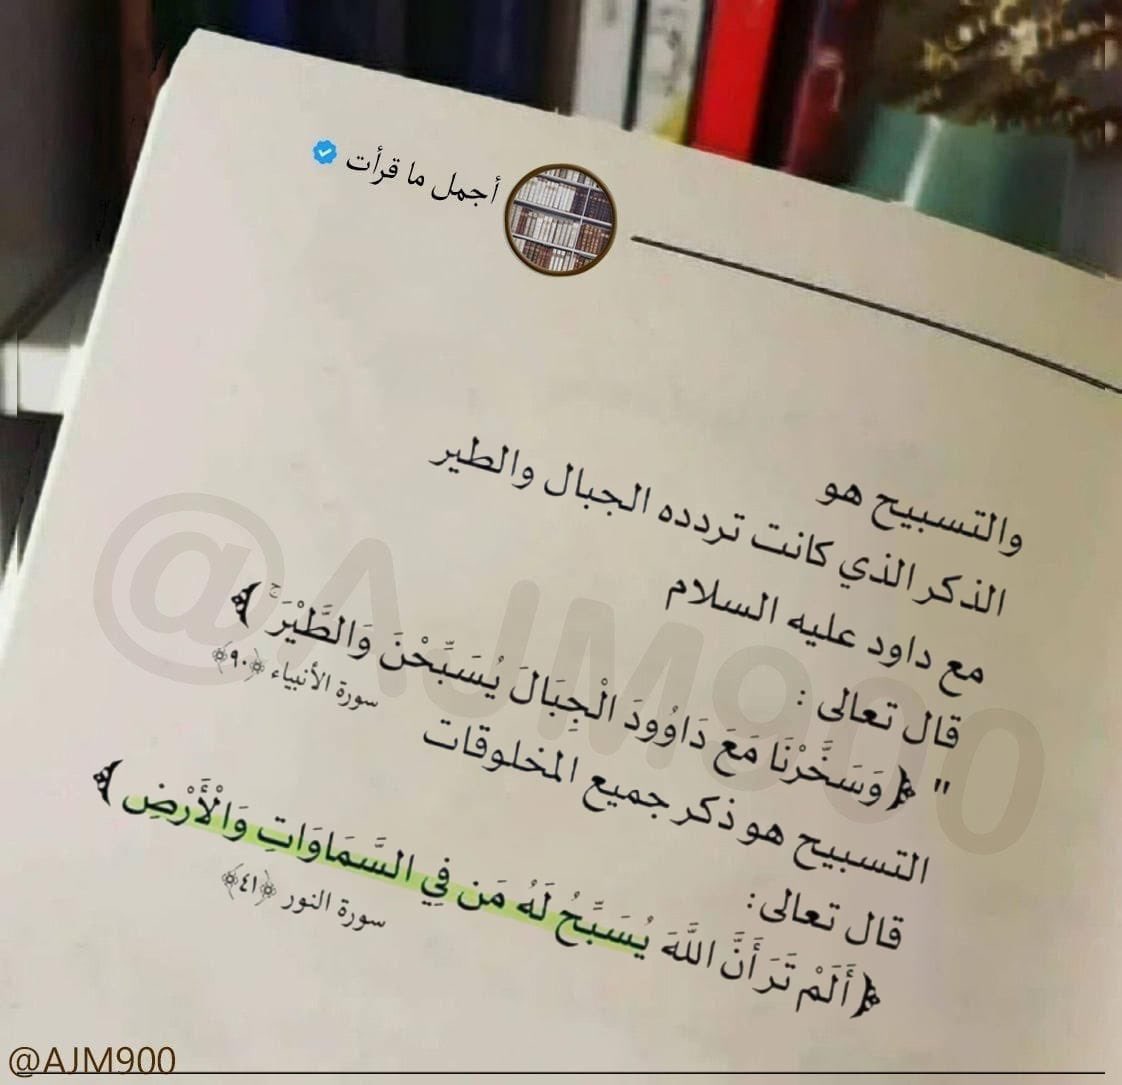 أجمل ما قرأت
والتسبيح هو
الذكر الذي كانت تردده الجبال والطير
مع داود عليه السلام
قال تعالى :
" ﴿وَسَخَّرْنَا مَعَ دَاوُودَ الْجِبَالَ يُسَبِّحْنَ وَالطَّيْرَ ۚ﴾
سورة الأنبياء ﴿٩٠﴾
التسبيح هو ذكر جميع المخلوقات
قال تعالى:
﴿أَلَمْ تَرَ أَنَّ اللَّهَ يُسَبِّحُ لَهُ مَن فِي السَّمَاوَاتِ وَالْأَرْضِ﴾
سورة النور ﴿٤١﴾
@AJM900
@AJM900